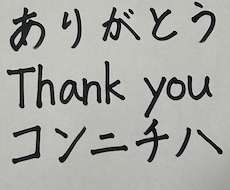 ありがとう
Thank you
コンニチハ